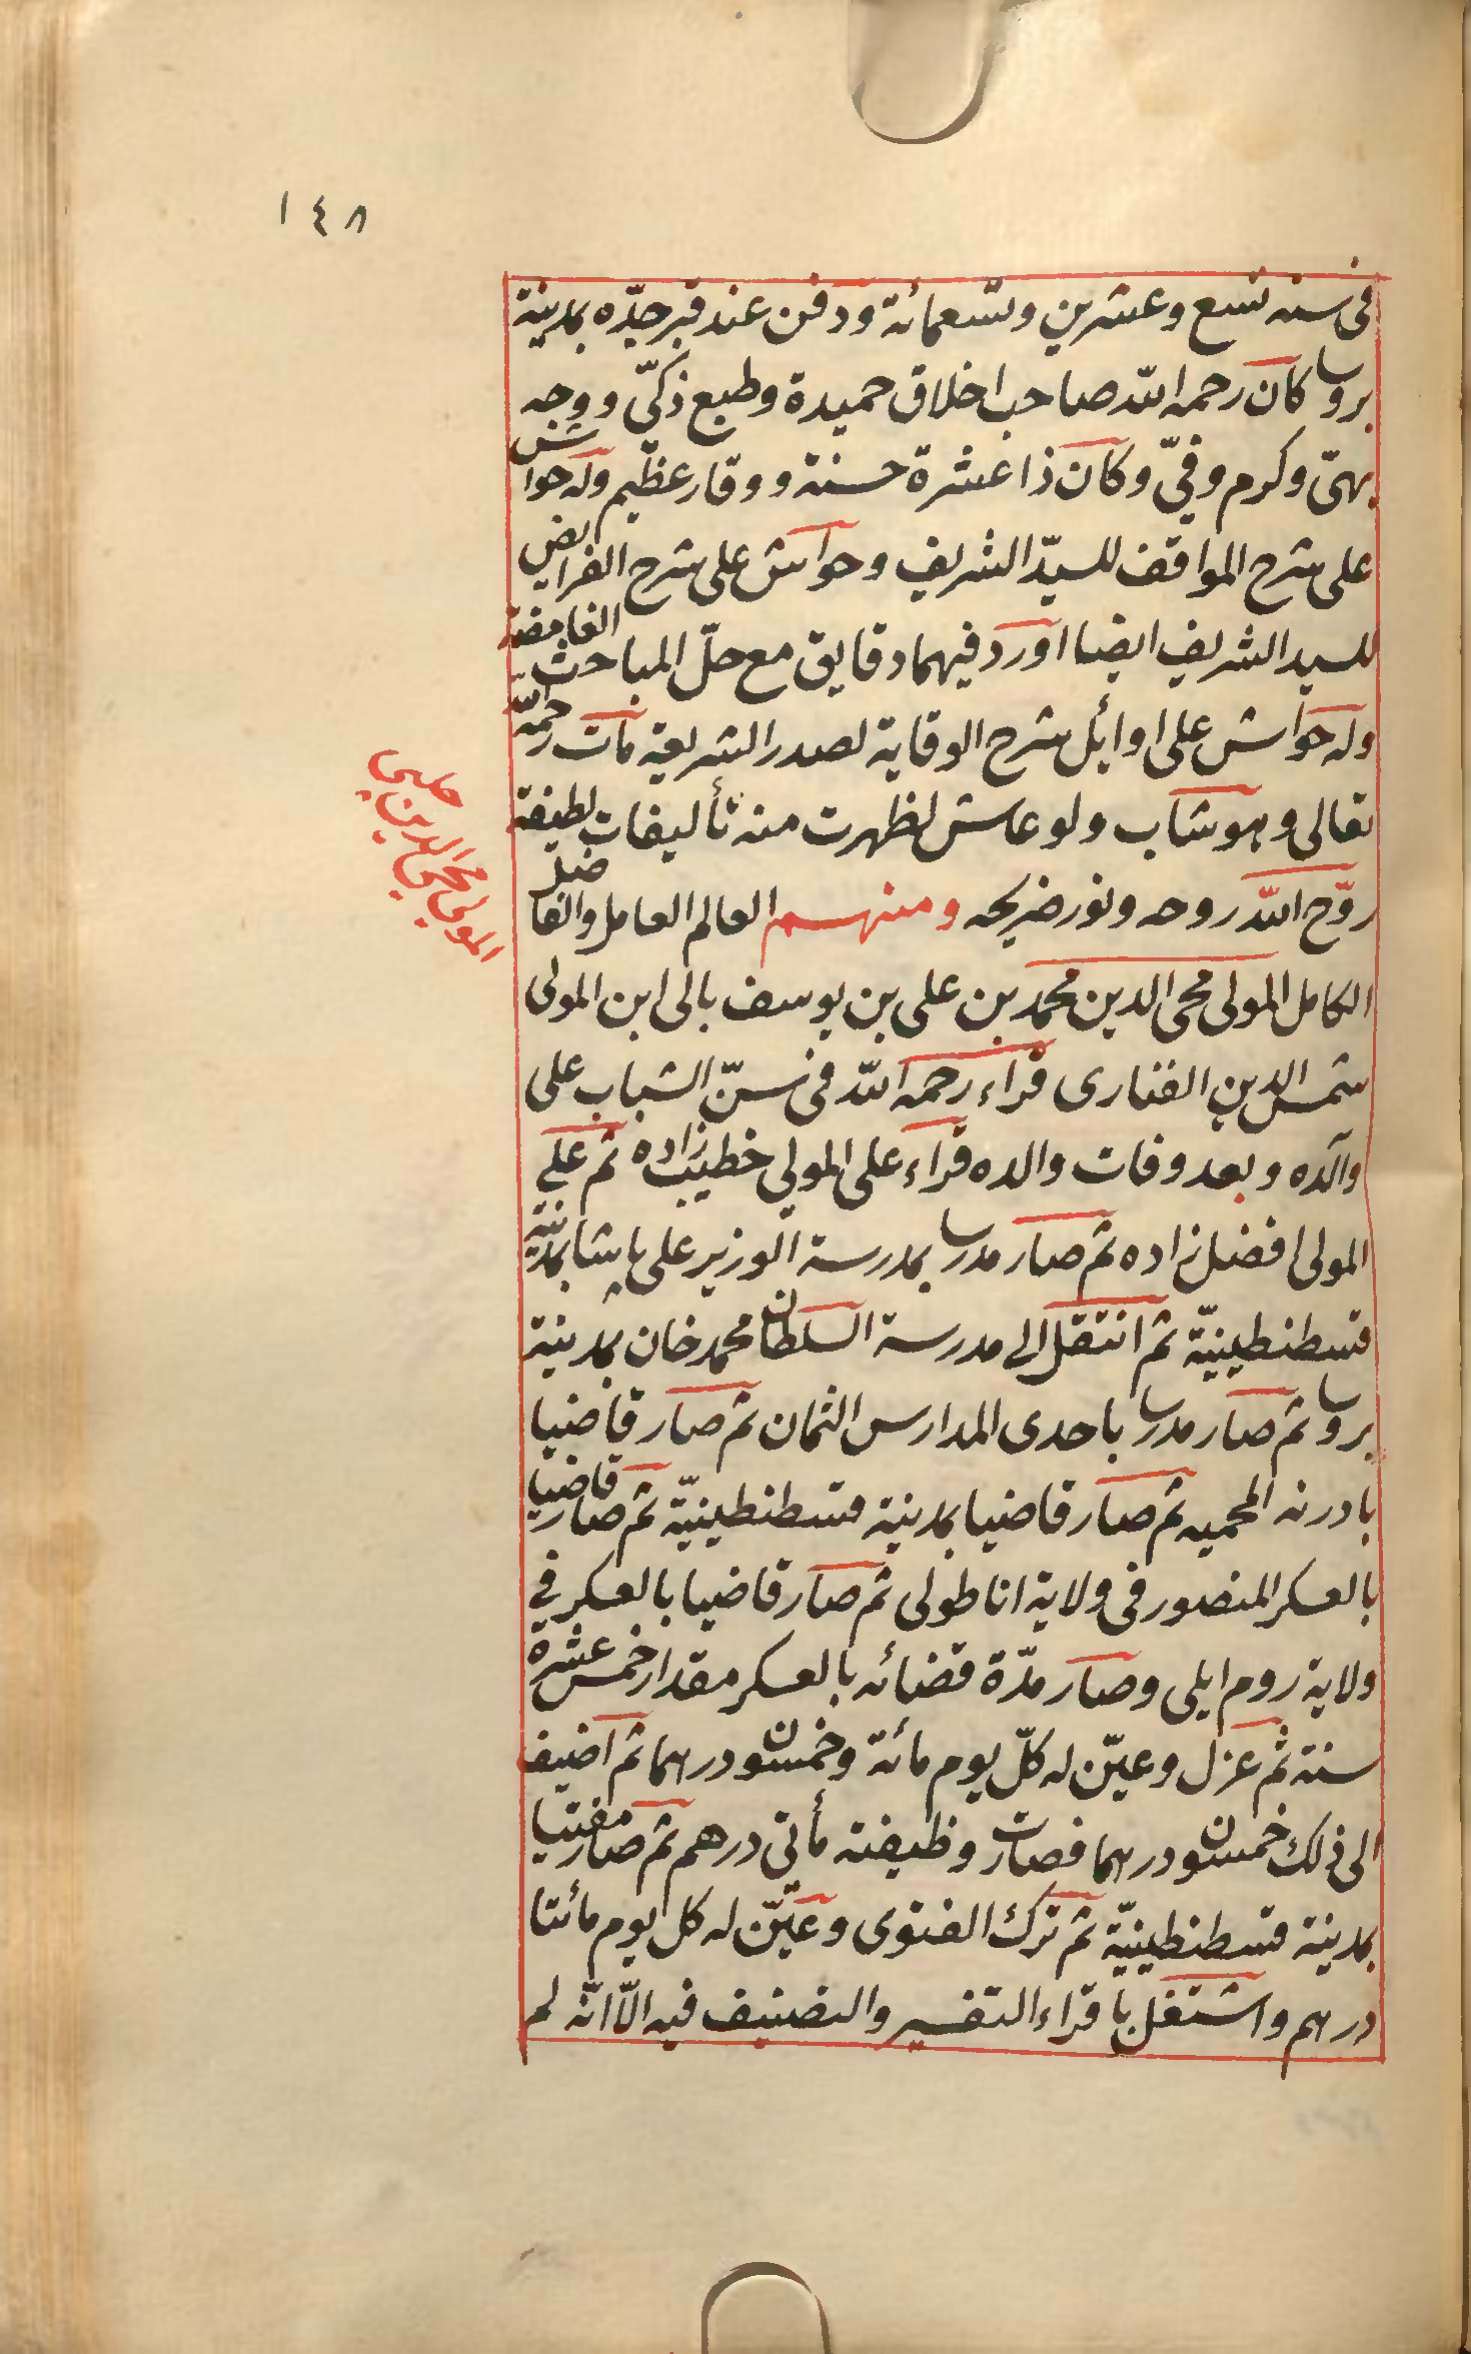 ١٤٨
فى سنه تسع وعشرين وتسعمائة ودفن عند قبر جدّه بمدينة
بروسا كان رحمه الله صاحب اخلاق حميدة وطبع ذكىّ ووجه
بهىّ وكرم وفىّ وكان ذا عشرة حسنة ووقار عظيم وله حواش
على شرح المواقف للسيّد الشريف وحواش على شرح الفرايض
للسيد الشريف ايضا اورد فيهما دقايق مع حلّ المباحث الغامضة
وله حواش على اوائل شرح الوقاية لصدر الشريعة مات رحمه الله
تعالى وهو شاب ولو عاش لظهرت منه تأليفات لطيفة
روّح الله روحه ونور ضريحه ومنهم العالم العامل والفاضل
المولى محيى الدين چلبى
الكامل المولى محى الدين محمد بن على بن يوسف بالى ابن المولى
شمس الدين الفنارى قراء رحمه الله فى سنّ الشباب على
والده وبعد وفات والده قراء على المولى خطيب زاده ثم على
المولى افضل زاده ثم صار مدرسا بمدرسة الوزير على پاشا بمدينة
قسطنطينيّة ثم انتقل الى مدرسة السلطان محمد خان بمدينة
بروسا ثم صار مدرسا باحدى المدارس الثمان ثم صار قاضيا
بادرنه المحميه ثم صار قاضيا بمدينة قسطنطينيّة ثم صار قاضيا
بالعسكر المنصور فى ولاية اناطولى ثم صار قاضيا بالعسكر في
ولاية روم ايلى وصار مدّة قضائه بالعسكر مقدار خمس عشرة
سنة ثم عزل وعيّن له كلّ يوم مائة وخمسون درهما ثم اضيف
الى ذلك خمسون درهما فصارت وظيفته مأتى درهم ثم صار مفتيا
بمدينة قسطنطينيّة ثم ترك الفتوى وعيّن له كل يوم مائتا
درهم واشتغل باقراء التفسير والتصنيف فيه الّا انّه لم